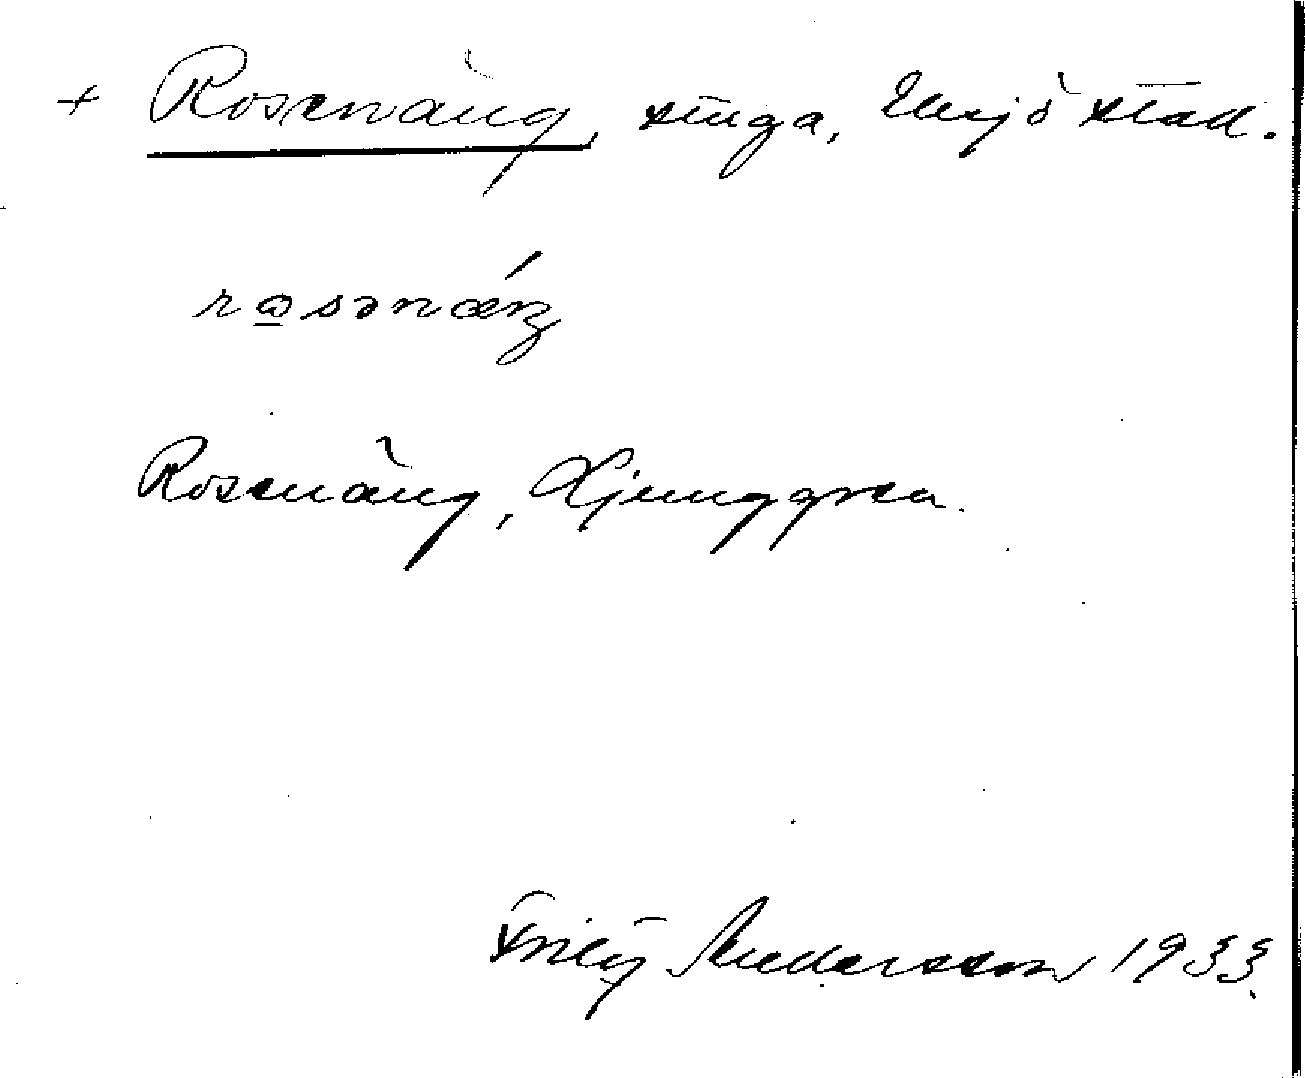 + Rosenäng, stuga, Eksjö stad.
rosənǽŋ
Rosenäng, Ljunggren.
Fritz Andersson 1933.